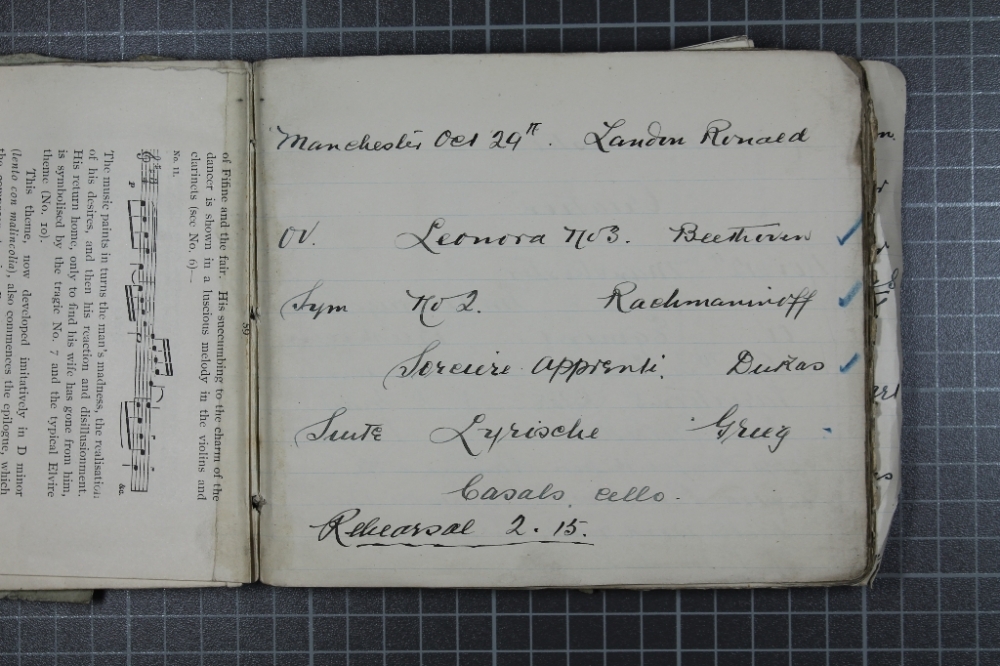 Manchester Oct 29th. Landon Ronald
OV. Leonora No3. Beethoven
Sym No 2. Rachmaninoff
Sorciere Apprenti. Dukas
Suite Lyrische Grieg
Casals, cello.
Rehearsal 2.15.
59
of Fifine and the fair. His succumbing to the charm of the
dancer is shown in a luscious melody in the violins and
clarinets (see No. 6)—
No. 11.
p
&c.
The music paints in turns the man's madness, the realisation
of his desires, and then his reaction and disillusionment.
His return home, only to find his wife has gone from him,
is symbolised by the tragic No. 7 and the typical Elvire
theme (No. 10).
This theme, now developed imitatively in D minor
(lento con malincolia), also commences the epilogue, which